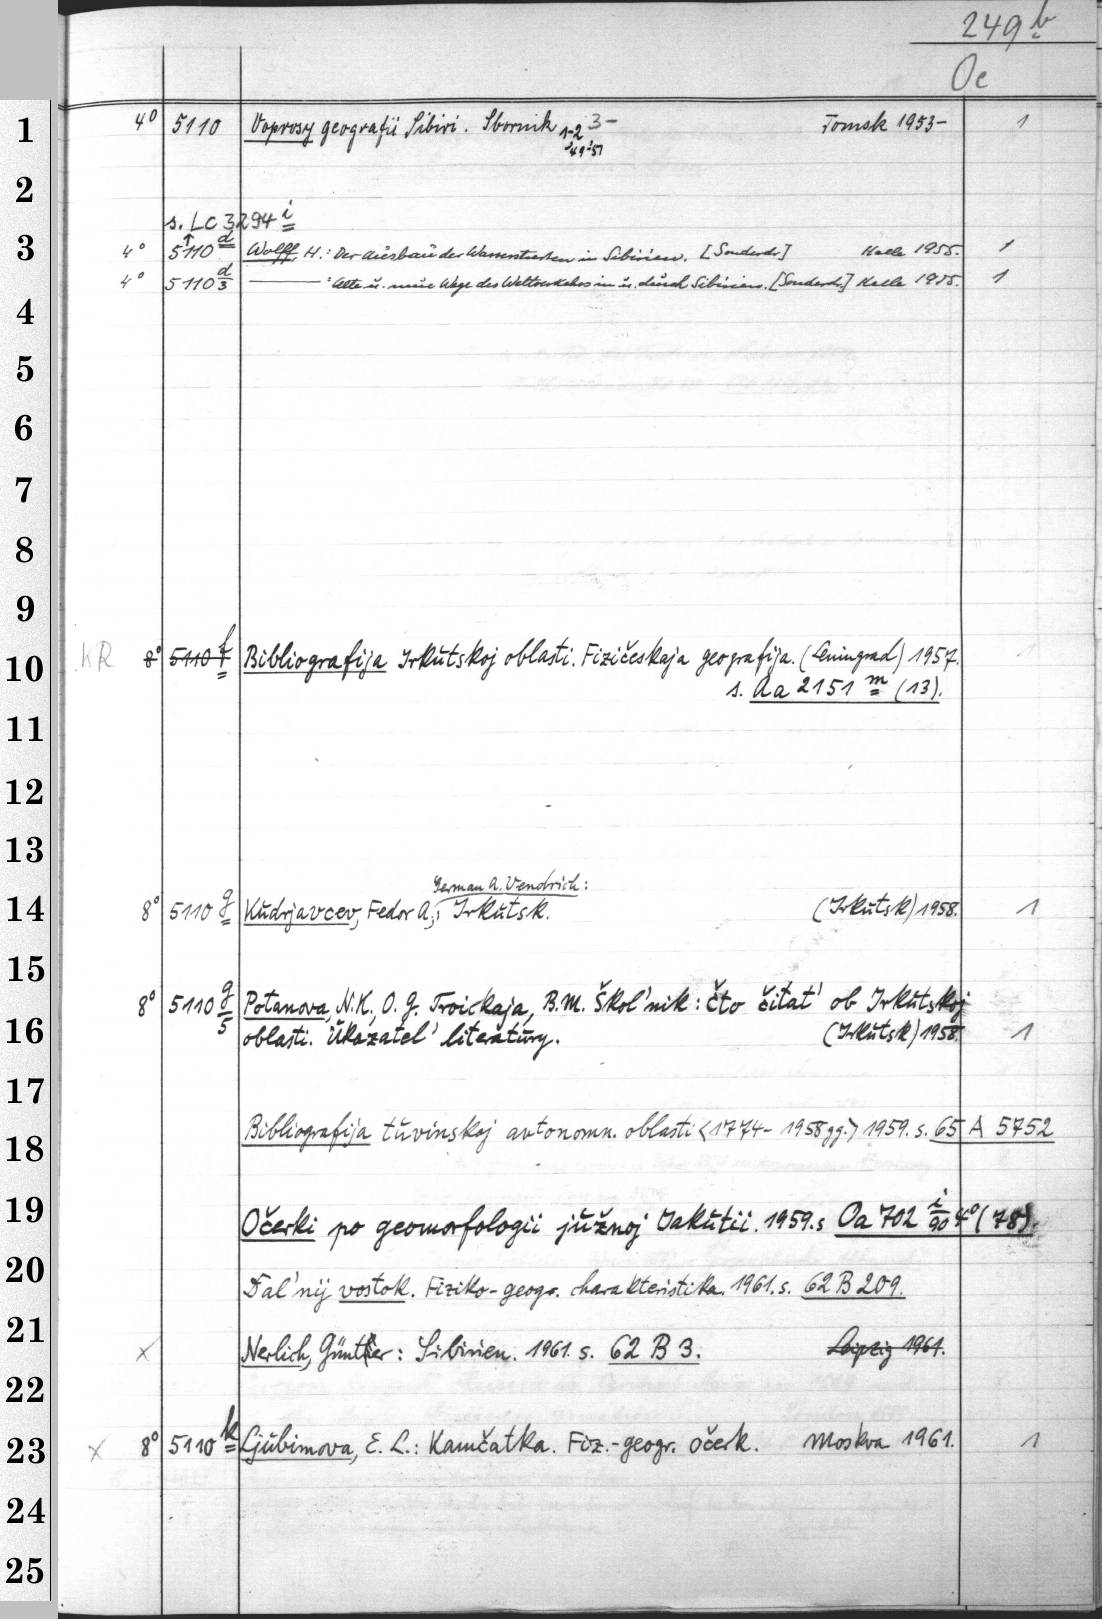 249 b
Oe
1 4° 5110 Voprosy geografii Sibiri. Sbornik 1-2 3- Tomsk 1953- 1
'49 '51
2
s. LC 3294 i
3 4° 5110 d Wolff, H.: Der Ausbau der Wasserstraßen in Sibirien. [Sonderdr.] Halle 1955. 1
4° 5110 d/3 ——— : Alte u. neue Wege des Weltverkehrs in u. durch Sibirien. [Sonderdr.] Halle 1955. 1
4
5
6
7
8
9
10 KR 8° 5110 f Bibliografija Irkutskoj oblasti. Fizičeskaja geografija. (Leningrad) 1957. 1
s. Aa 2151 m (13).
11
12
13
German A. Vendrich:
14 8° 5110 g Kudrjavcev, Fedor A., Irkutsk. (Irkutsk) 1958. 1
15
8° 5110 g/5 Potanova, N.K., O. G. Troickaja, B.M. Škol'nik: Čto čitat' ob Irkutskoj
16 oblasti. Ukazatel' literatury. (Irkutsk) 1958. 1
17
18 Bibliografija tuvinskoj avtonomn. oblasti <1774-1958 gg.> 1959. s. 65 A 5752
19 Očerki po geomorfologii južnoj Jakutii. 1959. s Oa 702 i/90 4° (78).
20 Dal'nij vostok. Fiziko-geogr. charakteristika. 1961. s. 62 B 209.
21 x Nerlich, Günther: Sibirien. 1961. s. 62 B 3. Leipzig 1961.
22
23 x 8° 5110 k Ljubimova, E. L.: Kamčatka. Fiz.-geogr. očerk. Moskva 1961. 1
24
25